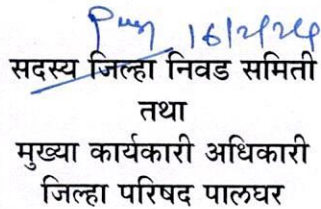 16/2/24
सदस्य जिल्हा निवड समिती
तथा
मुख्या कार्यकारी अधिकारी
जिल्हा परिषद पालघर